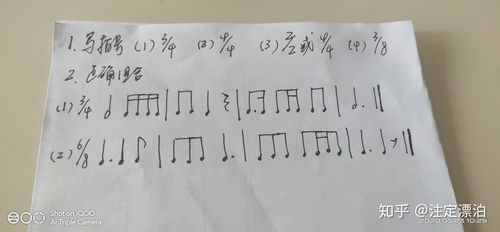 1. 写拍号 (1) 3/4 (2) 4/4 (3) 2/2或4/4 (4) 3/8
2. 正确组合
(1) 3/4
(2) 6/8
Shot on iQOO
AI Triple Camera
知乎 @注定漂泊
2020.05.23 10:29